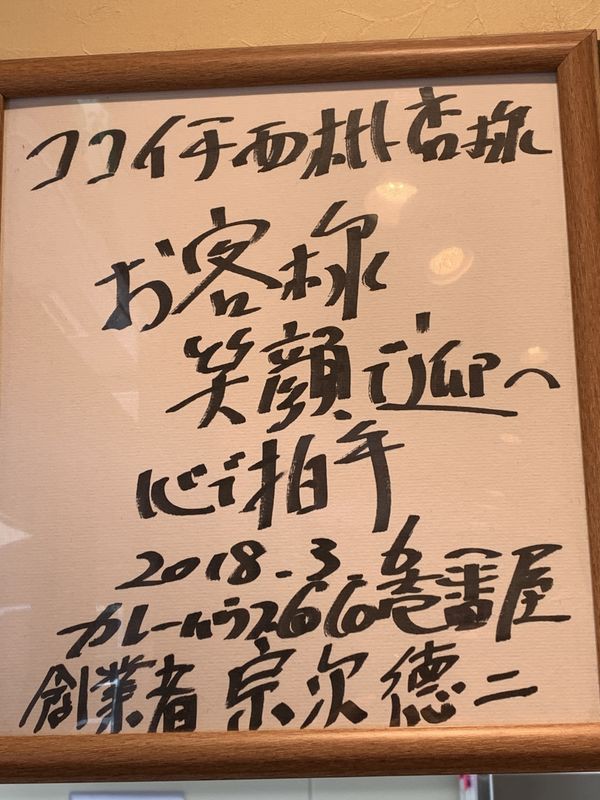 ココイチ西枇店様
お客様
笑顔で迎へ
心で拍手
2018.3.6
カレーハウスCoCo壱番屋
創業者 宗次德二